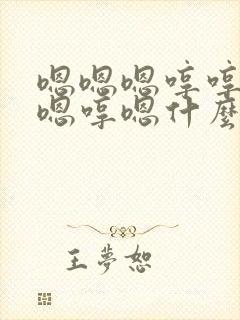 嗯嗯嗯哼哼
嗯哼嗯什麼
王夢恕